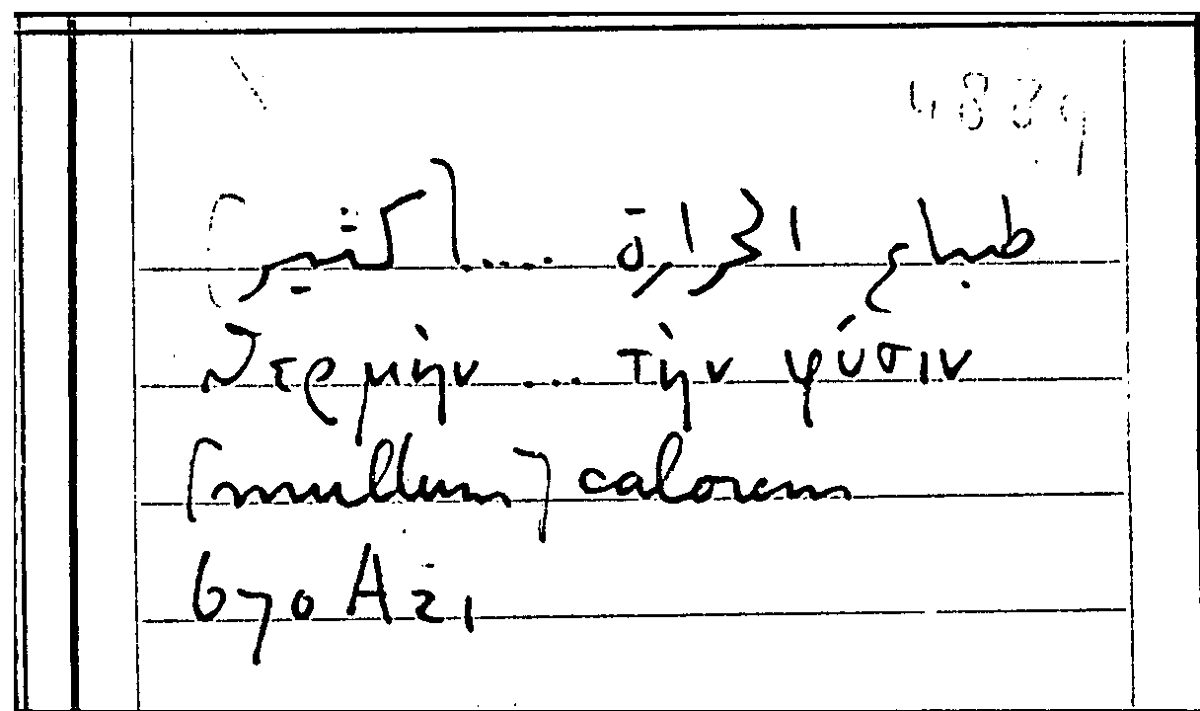 طباع الحرارة ..... [كثير]
θερμὴν ... τὴν φύσιν
[multum] calorem
670 A 21